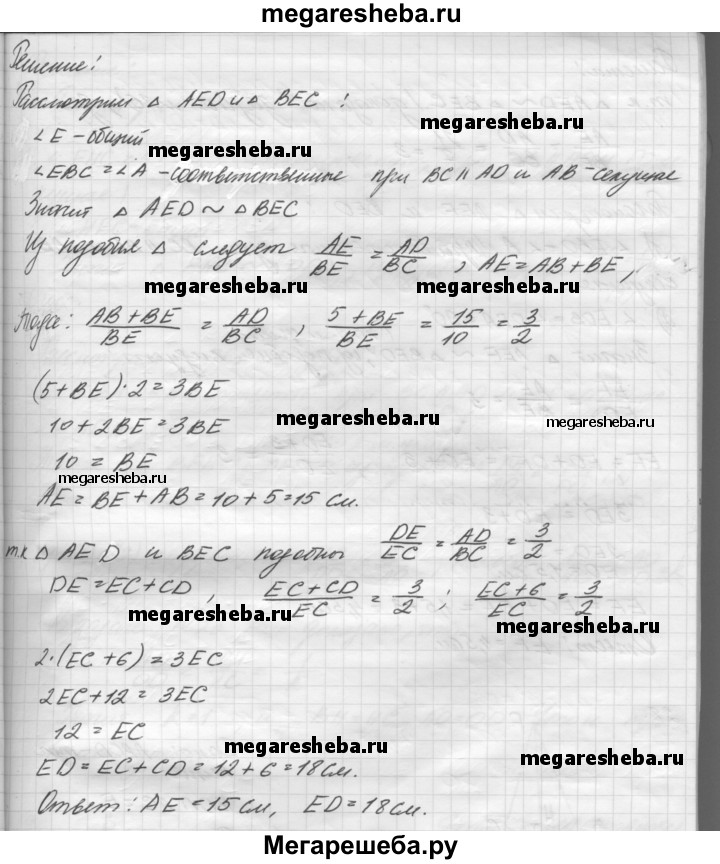 megaresheba.ru
Решение!
Рассмотрим Δ AED и Δ BEC :
megaresheba.ru
∠E - общий
megaresheba.ru
∠EBC = ∠A - соответственные при BC || AD и AB - секущае
Значит Δ AED ~ Δ BEC
Из подобия Δ следует AE/BE = AD/BC , AE = AB + BE,
megaresheba.ru megaresheba.ru
тогда: (AB + BE)/BE = AD/BC , (5 + BE)/BE = 15/10 = 3/2
(5 + BE) · 2 = 3BE
10 + 2BE = 3BE
megaresheba.ru
10 = BE
megaresheba.ru
AE = BE + AB = 10 + 5 = 15 см.
megaresheba.ru
т.к Δ AED и BEC подобны DE/EC = AD/BC = 3/2
DE = EC + CD , (EC + CD)/EC = 3/2 ; (EC + 6)/EC = 3/2
megaresheba.ru
megaresheba.ru
2·(EC + 6) = 3EC
2EC + 12 = 3EC
12 = EC
megaresheba.ru
megaresheba.ru
ED = EC + CD = 12 + 6 = 18 см.
Ответ: AE = 15 см, ED = 18 см.
Мегарешеба.ру